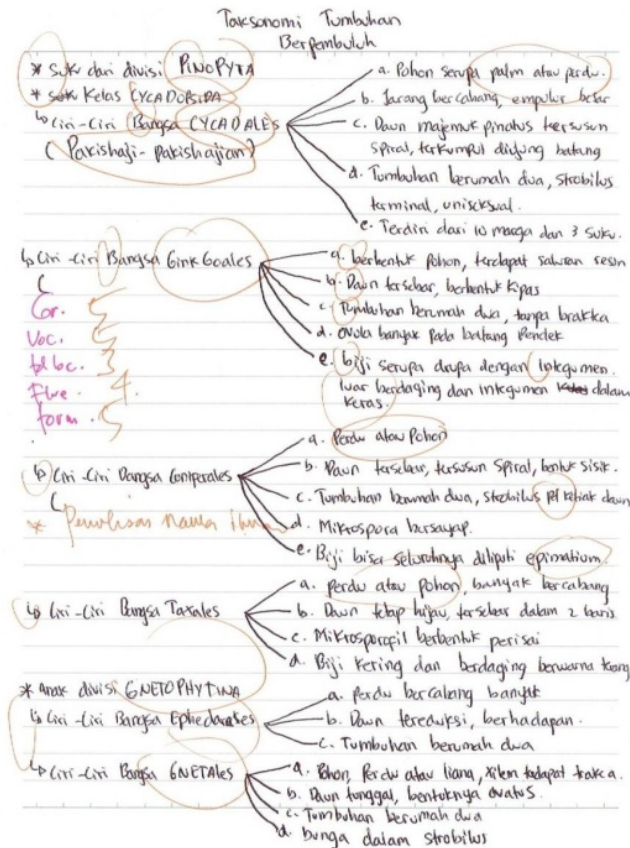 Taksonomi Tumbuhan
Berpembuluh
* Suku dari divisi PINOPYTA
* Kelas CYCADOPSIDA
↳ Ciri-Ciri Bangsa CYCADALES
(Pakishaji-pakishajian)
a. Pohon serupa palm atau perdu.
b. Jarang bercabang, empulur besar
c. Daun majemuk pinatus tersusun
spiral, terkumpul diujung batang
d. Tumbuhan berumah dua, strobilus
terminal, uniseksual.
e. Terdiri dari 10 marga dan 3 suku.
↳ Ciri-Ciri Bangsa GinkGoales
a. berbentuk Pohon, terdapat saluran resin
b. Daun tersebar, berbentuk kipas
c. Tumbuhan berumah dua, tanpa braktea
d. Ovula banyak pada batang Pendek
e. biji serupa drupa dengan integumen
luar berdaging dan integumen dalam
keras.
Gr. 5
Voc. 5
5
Flue. 4.
form. 5
↳ Ciri-Ciri Bangsa Coniperales
* Penulisan Nama
a. Perdu atau Pohon
b. Daun tersebar, tersusun Spiral, bentuk sisik.
c. Tumbuhan berumah dua, strobilus pd ketiak daun
d. Mikrospora bersayap.
e. Biji bisa seluruhnya diliputi epimatium.
↳ Ciri-Ciri Bangsa Taxales
a. Perdu atau Pohon, banyak bercabang
b. Daun tetap hijau, tersebar dalam 2 baris
c. Mikrosporofil berbentuk perisai
d. Biji kering dan berdaging berwarna
* Anak divisi GNETOPHYTINA
↳ Ciri-Ciri Bangsa Ephedarales
a. Perdu bercabang banyak
b. Daun tereduksi, berhadapan.
c. Tumbuhan berumah dua
↳ Ciri-Ciri Bangsa GNETALes
a. Pohon, Perdu atau liana, xilem tadapat trakea.
b. Daun tunggal, bentuknya ovatus.
c. Tumbuhan berumah dua
d. bunga dalam strobilus